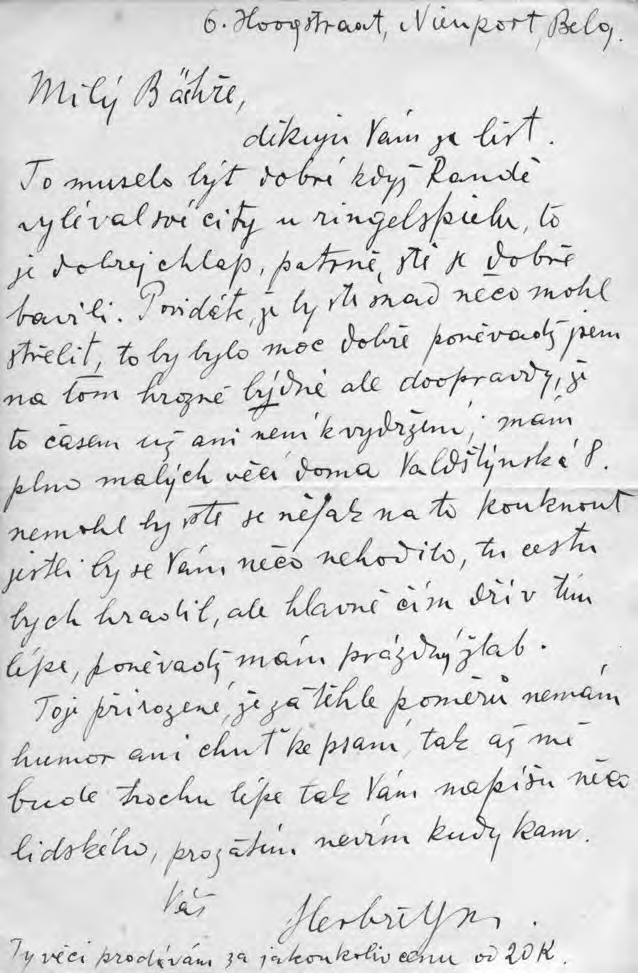 6. Hoogstraat, Nieuport, Belg.
Milý Bähře,
děkuju Vám za list.
To muselo být dobré když Randé
vyléval své city u ringelspielu, to
je dobrej chlap, patrně, sté se dobře
bavili. Povidáte, že by ste snad něco mohl
střelit, to by bylo moc dobře poněvadž jsem
na tom hrozně bídně ale doopravdy, že
to časem už ani není k vydržení, mám
plno malých věcí doma Valdštýnská 8.
nemohl by ste se nějak na to kouknout
jestli by se Vám něco nehodilo, tu cestu
bych hradil, ale hlavně čím dřív tím
lépe, poněvadž mám prázdný žlab.
Toje přirozené, že za těhle poměrů nemám
humor ani chuť ke psaní, tak až mě
bude trochu lépe tak Vám napíšu něco
lidského, prozatím nevím kudy kam.
Váš
Ty věci prodávám za jakoukoliv cenu od 20 K.